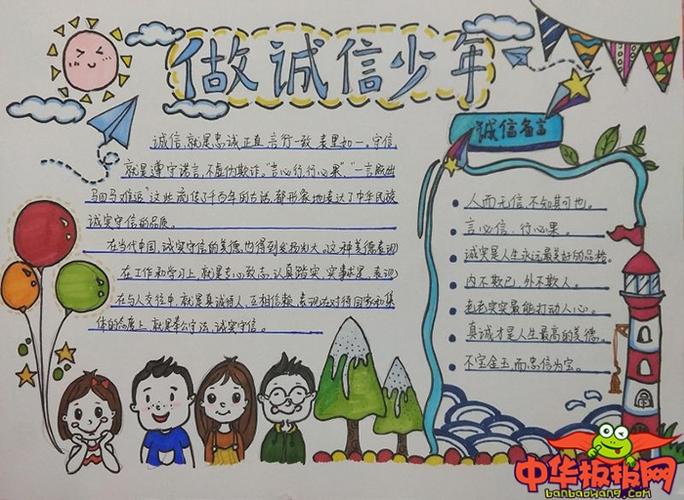 做诚信少年
诚信,就是忠诚正直,言行一致,表里如一。守信
就是遵守诺言,不虚伪欺诈。"言必行,行必果""一言既出
驷马难追"这些流传了千百年的古话,都形象地表达了中华民族
诚实守信的品质。
在当代中国,诚实守信的美德,也得到发扬光大。这种美德表现
在工作和学习上,就是专心致志,认真踏实,实事求是,表现
在与人交往中,就是真诚待人,互相信赖,表现在对待国家和集
体的态度上,就是奉公守法,诚实守信。
诚信名言
人而无信,不知其可也。
言必信,行必果。
诚实是人生永远最美好的品格。
内不欺已,外不欺人。
老老实实最能打动人心。
真诚才是人生最高的美德。
不宝金玉,而忠信为宝。
中华板报网
banbaowang.com